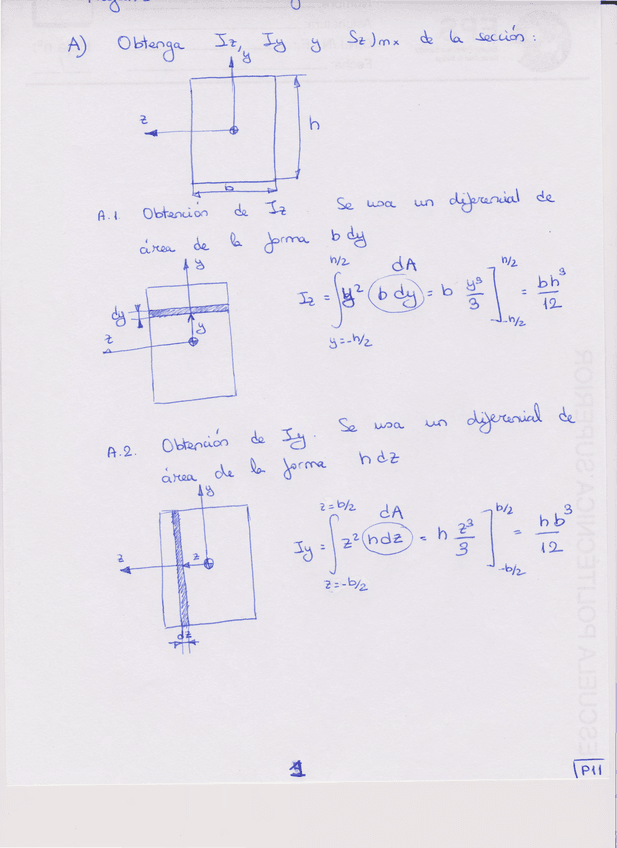 A) Obtenga Iz, Iy y Sz)mx de la sección:
y
z
h
b
A.1. Obtención de Iz Se usa un diferencial de
área de la forma b dy
y
dy
y
z
Iz = ∫ y=-h/2 h/2 y² (b dy) dA = b y³/3 ] -h/2 h/2 = bh³/12
A.2. Obtención de Iy. Se usa un diferencial de
área de la forma h dz
y
z
z
dz
Iy = ∫ z=-b/2 z=b/2 z² (h dz) dA = h z³/3 ] -b/2 b/2 = hb³/12
ESCUELA POLITÉCNICA SUPERIOR
1
P11